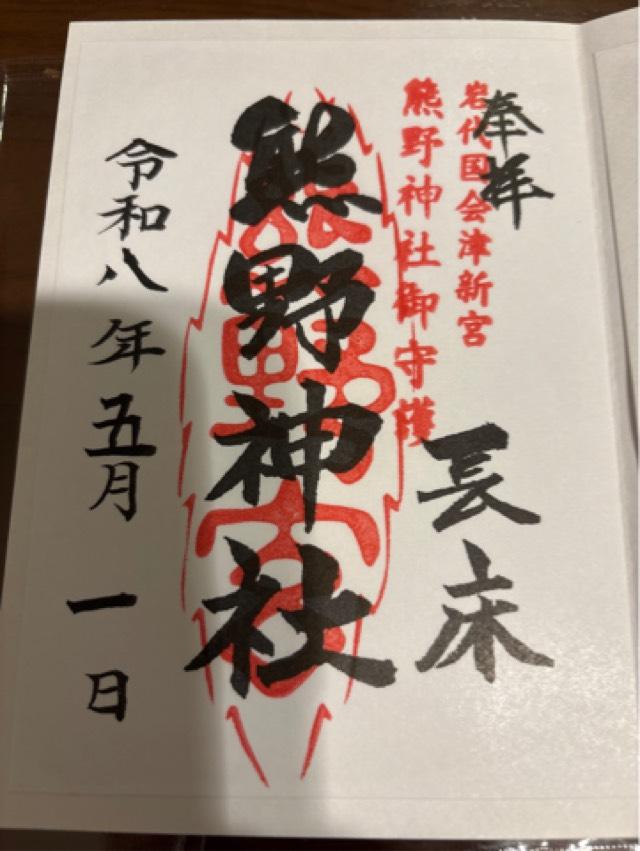 奉拝
岩代国会津新宮
熊野神社御守護
長床
熊野神社
令和八年五月一日